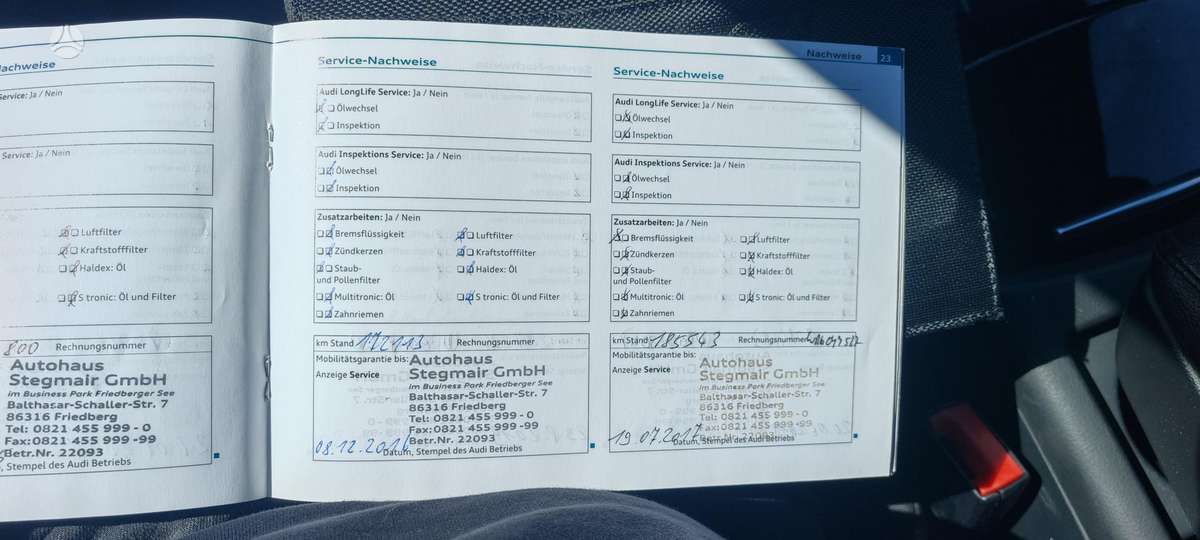 Nachweise
Service: Ja / Nein
Service: Ja / Nein
Luftfilter
Kraftstofffilter
Haldex: Öl
S tronic: Öl und Filter
800 Rechnungsnummer
Autohaus
Stegmair GmbH
im Business Park Friedberger See
Balthasar-Schaller-Str. 7
86316 Friedberg
Tel: 0821 455 999 - 0
Fax: 0821 455 999 -99
Betr.Nr. 22093
, Stempel des Audi Betriebs
Service-Nachweise
Audi LongLife Service: Ja / Nein
Ölwechsel
Inspektion
Audi Inspektions Service: Ja / Nein
Ölwechsel
Inspektion
Zusatzarbeiten: Ja / Nein
Bremsflüssigkeit Luftfilter
Zündkerzen Kraftstofffilter
Staub- Haldex: Öl
und Pollenfilter
Multitronic: Öl S tronic: Öl und Filter
Zahnriemen
km Stand 172113 Rechnungsnummer
Mobilitätsgarantie bis:
Anzeige Service
Autohaus
Stegmair GmbH
im Business Park Friedberger See
Balthasar-Schaller-Str. 7
86316 Friedberg
Tel: 0821 455 999 - 0
Fax: 0821 455 999 -99
Betr.Nr. 22093
08.12.2016
Datum, Stempel des Audi Betriebs
Nachweise 23
Service-Nachweise
Audi LongLife Service: Ja / Nein
Ölwechsel
Inspektion
Audi Inspektions Service: Ja / Nein
Ölwechsel
Inspektion
Zusatzarbeiten: Ja / Nein
Bremsflüssigkeit Luftfilter
Zündkerzen Kraftstofffilter
Staub- Haldex: Öl
und Pollenfilter
Multitronic: Öl S tronic: Öl und Filter
Zahnriemen
km Stand 185543 Rechnungsnummer
Mobilitätsgarantie bis:
Anzeige Service
Autohaus
Stegmair GmbH
im Business Park Friedberger See
Balthasar-Schaller-Str. 7
86316 Friedberg
Tel: 0821 455 999 - 0
Fax: 0821 455 999 -99
Betr.Nr. 22093
19.07.2017
Datum, Stempel des Audi Betriebs